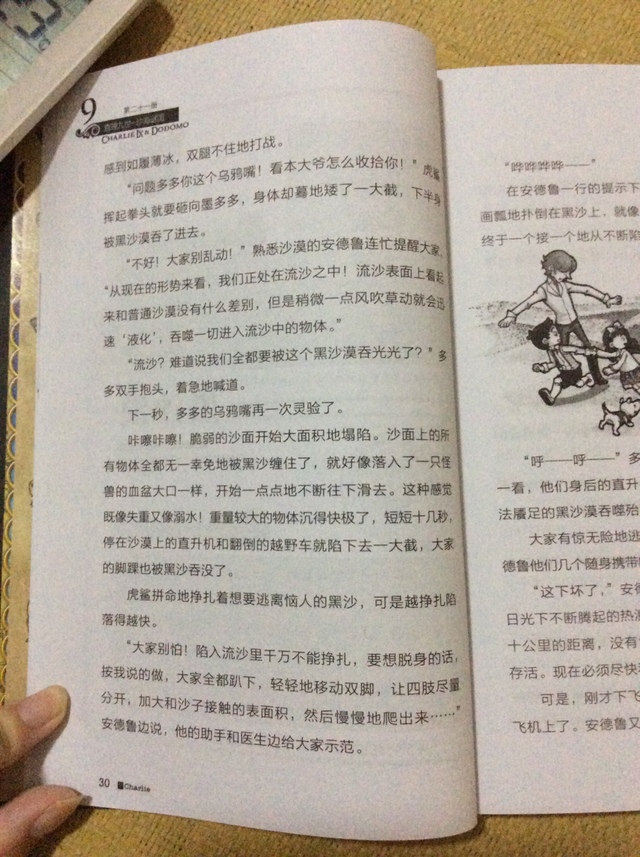 9
第二十一册
CHARLIE IX & DODOMO
感到如履薄冰，双腿不住地打战。
“问题多多你这个乌鸦嘴！看本大爷怎么收拾你！”虎鲨
挥起拳头就要砸向墨多多，身体却蓦地矮了一大截，下半身
被黑沙漠吞了进去。
“不好！大家别乱动！”熟悉沙漠的安德鲁连忙提醒大家，
“从现在的形势来看，我们正处在流沙之中！流沙表面上看起
来和普通沙漠没有什么差别，但是稍微一点风吹草动就会迅
速‘液化’，吞噬一切进入流沙中的物体。”
“流沙？难道说我们全都要被这个黑沙漠吞光光了？”多
多双手抱头，着急地喊道。
下一秒，多多的乌鸦嘴再一次灵验了。
咔嚓咔嚓！脆弱的沙面开始大面积地塌陷。沙面上的所
有物体全都无一幸免地被黑沙缠住了，就好像落入了一只怪
兽的血盆大口一样，开始一点点地不断往下滑去。这种感觉
既像失重又像溺水！重量较大的物体沉得快极了，短短十几秒，
停在沙漠上的直升机和翻倒的越野车就陷下去一大截，大家
的脚踝也被黑沙吞没了。
虎鲨拼命地挣扎着想要逃离恼人的黑沙，可是越挣扎陷
落得越快。
“大家别怕！陷入流沙里千万不能挣扎，要想脱身的话，
按我说的做，大家全都趴下，轻轻地移动双脚，让四肢尽量
分开，加大和沙子接触的表面积，然后慢慢地爬出来……”
安德鲁边说，他的助手和医生边给大家示范。
30 Charlie
“哗哗哗哗——”
在安德鲁一行的提示下
画瓢地扑倒在黑沙上，就像
终于一个接一个地从不断陷
“呼——呼——”多
一看，他们身后的直升
法餍足的黑沙漠吞噬殆
大家有惊无险地逃
德鲁他们几个随身携带
“这下坏了，”安德
日光下不断腾起的热
十公里的距离，没有
存活。现在必须尽快
可是，刚才下飞
飞机上了。安德鲁又